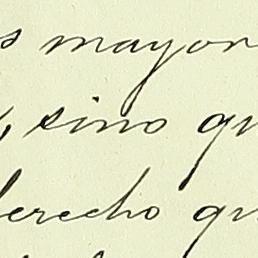 s mayor
, sino qu
derecho qu